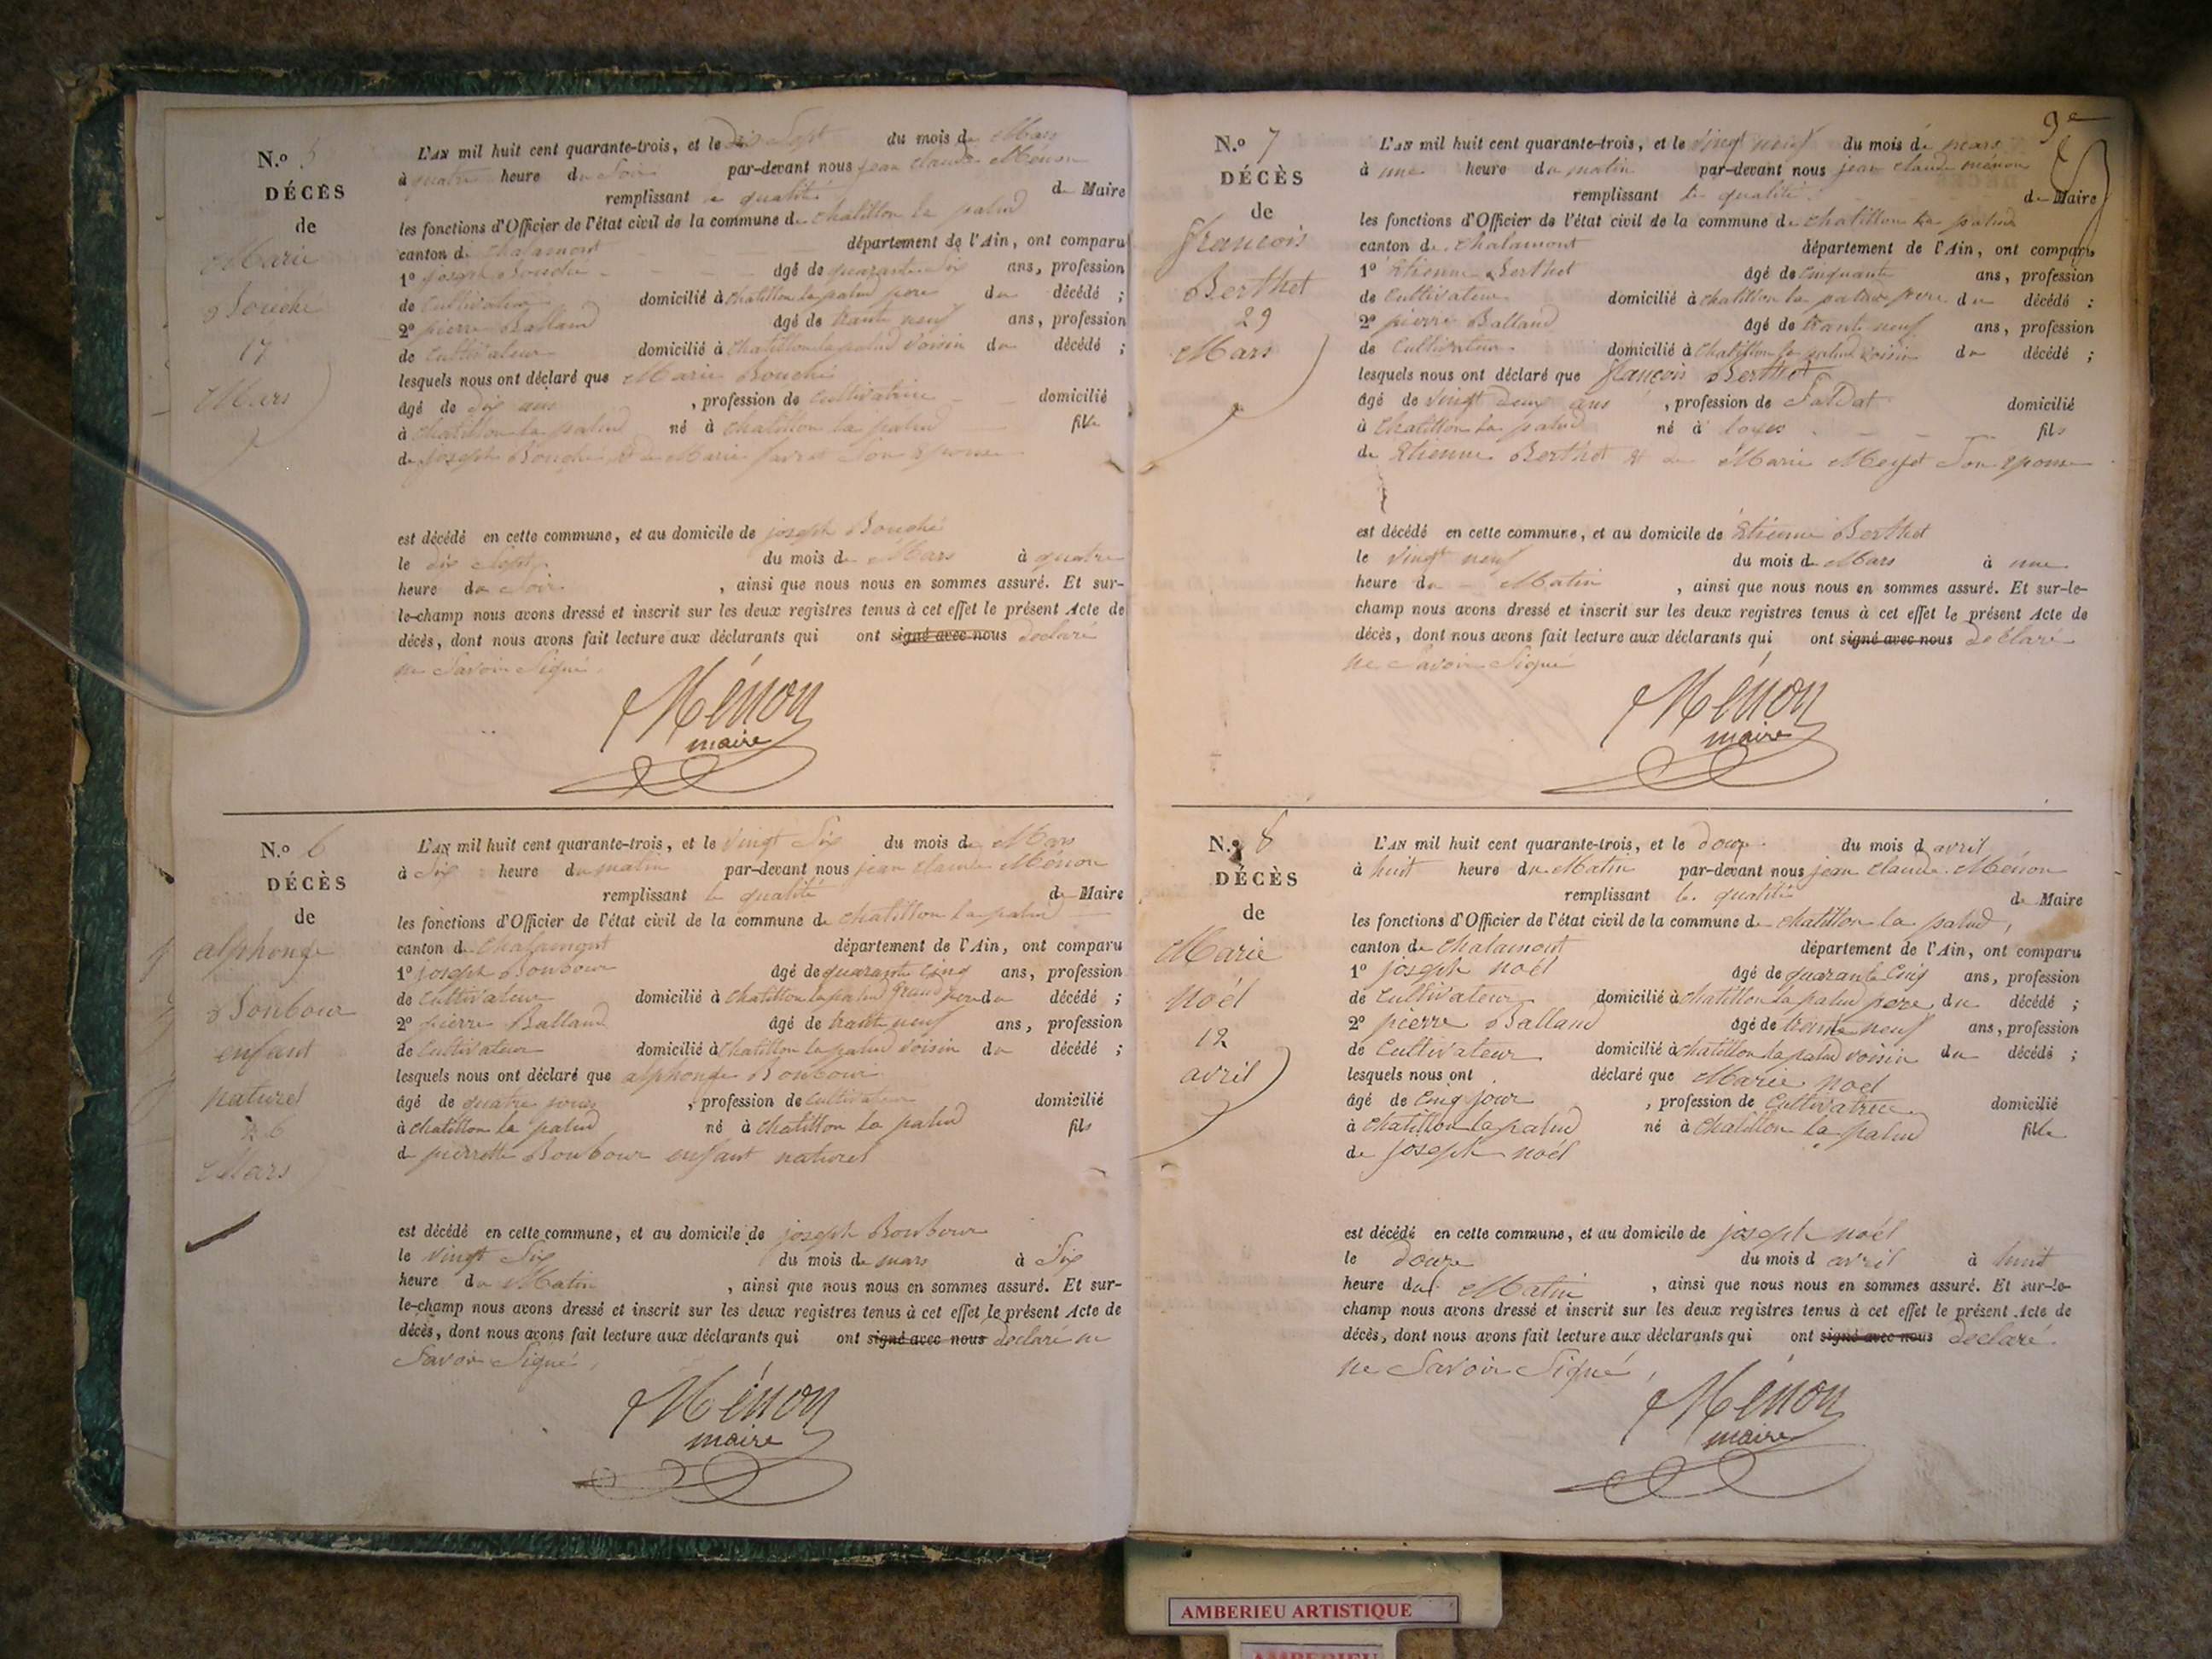 N.o 5
DÉCÈS
de
Marie
Bouché
17
Mars
L'AN mil huit cent quarante-trois, et le dix Sept du mois de Mars
à quatre heure du Soir par-devant nous jean claude Ménon
remplissant la qualité de Maire
les fonctions d'Officier de l'état civil de la commune de chatillon la palud
canton de chalamont département de l'Ain, ont comparu
1o joseph Bouché âgé de quarante Six ans, profession
de Cultivateur domicilié à chatillon la palud pere du décédé ;
2o pierre Balland âgé de trante neuf ans, profession
de Cultivateur domicilié à chatillon la palud voisin du décédé ;
lesquels nous ont déclaré que Marie Bouché
âgé de dix ans , profession de Cultivatrice domicilié
à chatillon la palud né à chatillon la palud fille
de joseph Bouché & de Marie Son Epouse
est décédé en cette commune, et au domicile de joseph Bouché
le dix Sept du mois de Mars à quatre
heure du Soir , ainsi que nous nous en sommes assuré. Et sur-
le-champ nous avons dressé et inscrit sur les deux registres tenus à cet effet le présent Acte de
décès, dont nous avons fait lecture aux déclarants qui ont signé avec nous declaré
ne Savoir Signé
Ménon
maire
N.o 6
DÉCÈS
de
alphonge
Bonbour
enfant
naturel
26
Mars
L'AN mil huit cent quarante-trois, et le vingt Six du mois de Mars
à Six heure du matin par-devant nous jean claude Ménon
remplissant la qualité de Maire
les fonctions d'Officier de l'état civil de la commune de chatillon la palud
canton de chalamont département de l'Ain, ont comparu
1o joseph Bonbour âgé de quarante Cinq ans, profession
de Cultivateur domicilié à chatillon la palud grand pere du décédé ;
2o pierre Balland âgé de trante neuf ans, profession
de Cultivateur domicilié à chatillon la palud voisin du décédé ;
lesquels nous ont déclaré que alphonge Bonbour
âgé de quatre jours , profession de Cultivateur domicilié
à chatillon la palud né à chatillon la palud fils
de pierrette Bonbour enfant naturel
est décédé en cette commune, et au domicile de joseph Bonbour
le vingt Six du mois de mars à Six
heure du Matin , ainsi que nous nous en sommes assuré. Et sur-
le-champ nous avons dressé et inscrit sur les deux registres tenus à cet effet le présent Acte de
décès, dont nous avons fait lecture aux déclarants qui ont signé avec nous declaré ne
Savoir Signé,
Ménon
maire
9e
N.o 7
DÉCÈS
de
françois
Berthet
29
Mars
L'AN mil huit cent quarante-trois, et le vingt neuf du mois de mars
à une heure du matin par-devant nous jean claude ménon
remplissant la qualité de Maire
les fonctions d'Officier de l'état civil de la commune de chatillon la palud
canton de chalamont département de l'Ain, ont comparu
1o Etienne Berthet âgé de Cinquante ans, profession
de Cultivateur domicilié à chatillon la palud pere du décédé ;
2o pierre Balland âgé de trante neuf ans, profession
de Cultivateur domicilié à chatillon la palud voisin du décédé ;
lesquels nous ont déclaré que françois Berthet
âgé de vingt deux ans , profession de Saldat domicilié
à chatillon la palud né à loyes fils
de Etienne Berthet & de Marie Son Epouse
est décédé en cette commune, et au domicile de Etienne Berthet
le vingt neuf du mois de Mars à une
heure du Matin , ainsi que nous nous en sommes assuré. Et sur-le-
champ nous avons dressé et inscrit sur les deux registres tenus à cet effet le présent Acte de
décès, dont nous avons fait lecture aux déclarants qui ont signé avec nous declaré
ne Savoir Signé
Ménon
maire
N.o 8
DÉCÈS
de
Marie
Noél
12
avril
L'AN mil huit cent quarante-trois, et le douze du mois d avril
à huit heure du Matin par-devant nous jean claude Ménon
remplissant la qualité de Maire
les fonctions d'Officier de l'état civil de la commune de chatillon la palud,
canton de chalamont département de l'Ain, ont comparu
1o joseph noél âgé de quarante Cinq ans, profession
de Cultivateur domicilié à chatillon la palud pere du décédé ;
2o pierre Balland âgé de trante neuf ans, profession
de Cultivateur domicilié à chatillon la palud voisin du décédé ;
lesquels nous ont déclaré que Marie noél
âgé de Cinq jour , profession de Cultivatrice domicilié
à chatillon la palud né à chatillon la palud fille
de joseph noél
est décédé en cette commune, et au domicile de joseph noél
le douze du mois d avril à huit
heure du Matin , ainsi que nous nous en sommes assuré. Et sur-le-
champ nous avons dressé et inscrit sur les deux registres tenus à cet effet le présent Acte de
décès, dont nous avons fait lecture aux déclarants qui ont signé avec nous declaré
ne Savoir Signé,
Ménon
maire
AMBERIEU ARTISTIQUE
AMBERIEU